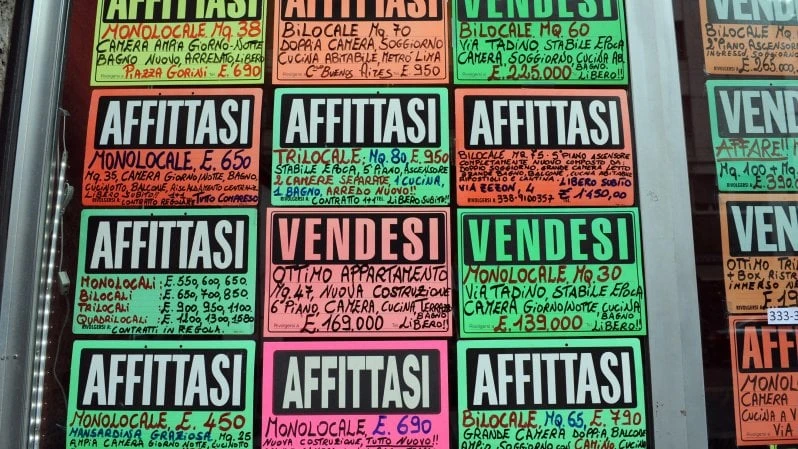 AFFITTASI
MONOLOCALE MQ. 38
CAMERA AMPIA GIORNO-NOTTE
BAGNO NUOVO, ARREDATO, LIBERO
PIAZZA GORINI E. 690
AFFITTASI
BILOCALE MQ. 70
DOPPIA CAMERA, SOGGIORNO
CUCINA ABITABILE, METRO' LIMA
C.SO BUENOS AIRES E 950
VENDESI
BILOCALE MQ. 60
VIA TADINO, STABILE EPOCA
CAMERA, SOGGIORNO, CUCINA AB.
BAGNO
E. 225.000 LIBERO!!
AFFITTASI
MONOLOCALE, E. 650
MQ. 35, CAMERA GIORNO/NOTTE, BAGNO,
CUCINOTTO, BALCONE,
CONTRATTO REGOLARE TUTTO COMPRESO
AFFITTASI
TRILOCALE, MQ. 80, E. 950
STABILE EPOCA, 5° PIANO, ASCENSORE
2 CAMERE SEPARATE, 1 CUCINA,
1 BAGNO, ARREDO NUOVO!!
RIVOLGERSI A CONTRATTO LIBERO SUBITO
AFFITTASI
BILOCALE MQ. 75 - 5° PIANO ASCENSORE
COMPLETAMENTE NUOVO COMPOSTO DA
DOPPIO SOGGIORNO, GRANDE CAMERA LETTO
GRANDE BAGNO, BALCONE, CUCINA ABITABILE
RIPOSTIGLIO E CANTINA. LIBERO SUBITO
VIA ZEZON, 4 E 1150,00
RIVOLGERSI A 338-9100357
AFFITTASI
MONOLOCALI: E. 550, 600, 650,
BILOCALI: E. 650, 700, 850,
TRILOCALI: E. 900, 950, 1100
QUADRILOCALI: E. 1200, 1300, 1580
RIVOLGERSI A CONTRATTI IN REGOLA.
VENDESI
OTTIMO APPARTAMENTO
MQ. 47, NUOVA COSTRUZIONE
6° PIANO, CAMERA, CUCINA, TERRAZZO
BAGNO
E. 169.000 LIBERO!!
VENDESI
MONOLOCALE, MQ. 30
VIA TADINO, STABILE EPOCA
CAMERA GIORNO/NOTTE, CUCINA
BAGNO
E. 139.000 LIBERO!!
AFFITTASI
MONOLOCALE, E. 450
MANSARDINA GRAZIOSA MQ. 25
AMPIA CAMERA GIORNO NOTTE, CUCINOTTO
AFFITTASI
MONOLOCALE, E. 690
NUOVA COSTRUZIONE, TUTTO NUOVO!!
AFFITTASI
BILOCALE, MQ. 65, E. 790
GRANDE CAMERA DOPPIA, BALCONE
AMPIO SOGGIORNO CON CAMINO, CUCINA
VEND
BILOCALE
2° PIANO, ASCENSORE
INGRESSO, SOGGIORNO
E. 265.000
VEND
AFFARE!!
MQ. 100 +
E. 390
VEN
OTTIMO TRI
+ BOX, RISTR
IMMERSO
333-3
AFF
MONOL
CAMERA
CUCINA A V
VIA